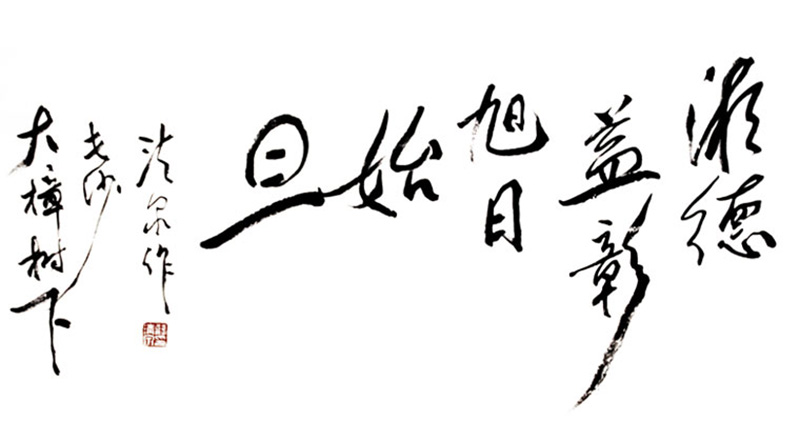 湘德
益彰
旭日
始
旦
法泉作
长沙
大樟树下